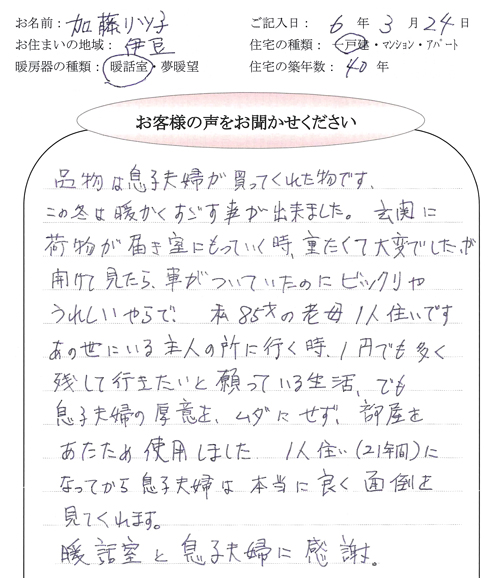 お名前： 加藤リツ子 ご記入日： 6 年 3 月 24 日
お住まいの地域： 伊豆 住宅の種類： 一戸建・マンション・アパート
暖房器の種類： 暖話室・夢暖望 住宅の築年数： 40 年
お客様の声をお聞かせください
品物は息子夫婦が買ってくれた物です、
この冬は暖かくすごす事が出来ました。玄関に
荷物が届き室にもっていく時、重たくて大変でしたが
開けて見たら、車がついていたのにビックリや
うれしいやらで、 私85才の老母1人住いです
あの世にいる主人の所に行く時、1円でも多く
残して行きたいと願っている生活、でも
息子夫婦の厚意を、ムダにせず、部屋を
あたため使用しました 1人住い(21年間)に
なってから息子夫婦は本当に良く面倒を
見てくれます。
暖話室と息子夫婦に感謝。